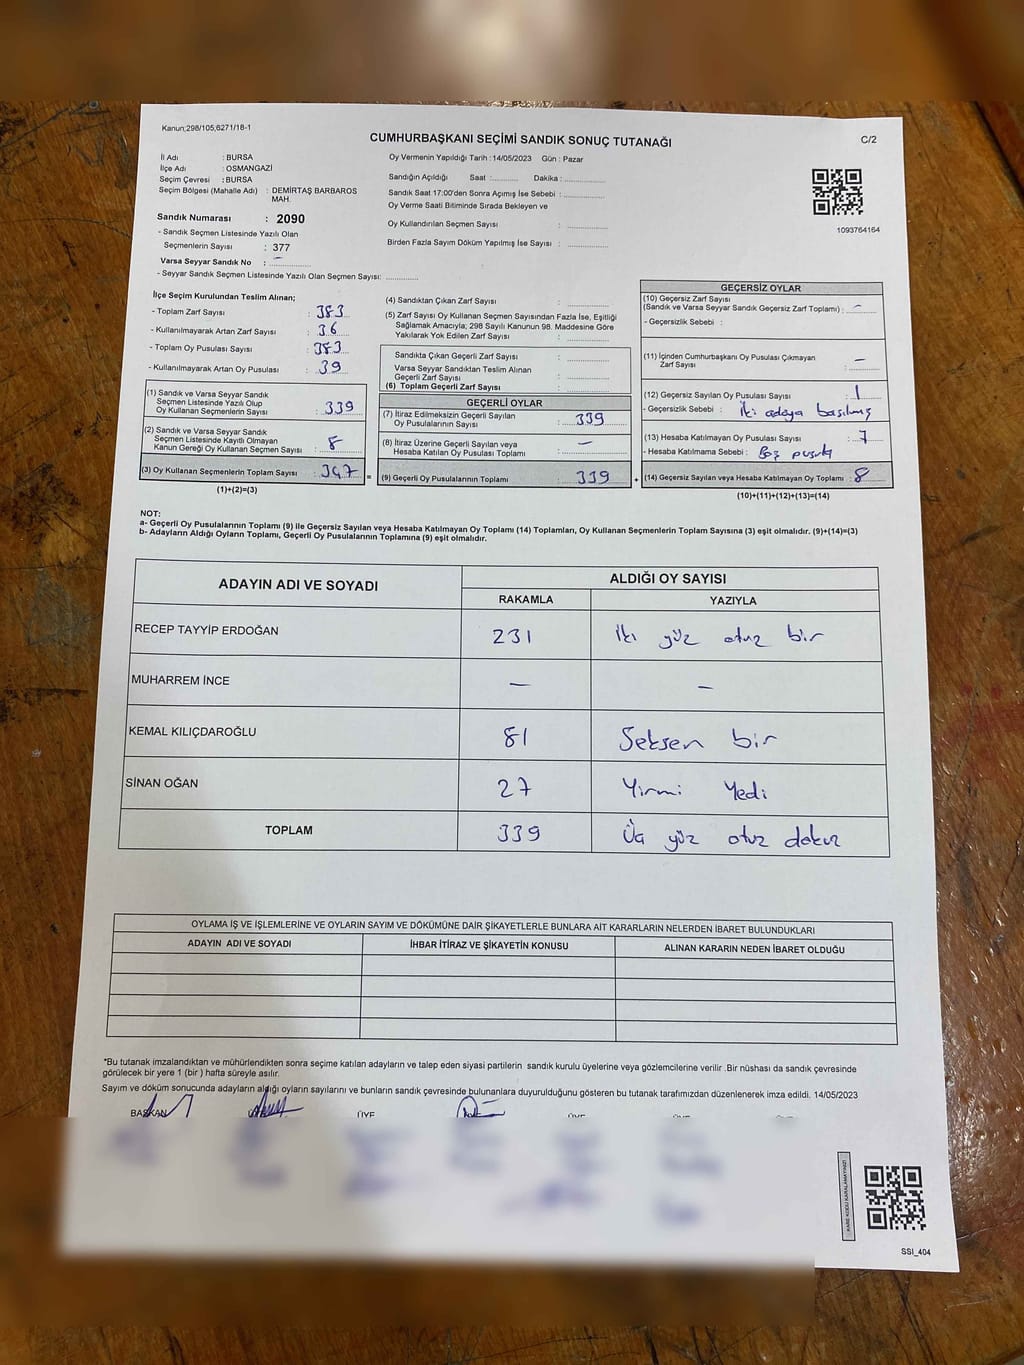 Kanun;298/105,6271/18-1
CUMHURBAŞKANI SEÇİMİ SANDIK SONUÇ TUTANAĞI
C/2
İl Adı : BURSA
İlçe Adı : OSMANGAZİ
Seçim Çevresi : BURSA
Seçim Bölgesi (Mahalle Adı) : DEMİRTAŞ BARBAROS
MAH.
Sandık Numarası : 2090
- Sandık Seçmen Listesinde Yazılı Olan
Seçmenlerin Sayısı : 377
Varsa Seyyar Sandık No : –
- Seyyar Sandık Seçmen Listesinde Yazılı Olan Seçmen Sayısı: ............
Oy Vermenin Yapıldığı Tarih : 14/05/2023 Gün : Pazar
Sandığın Açıldığı Saat :......... Dakika : ...............
Sandık Saat 17:00'den Sonra Açımış İse Sebebi : ...............
Oy Verme Saati Bitiminde Sırada Bekleyen ve
Oy Kullandırılan Seçmen Sayısı : ...............
Birden Fazla Sayım Döküm Yapılmış İse Sayısı : ...............
1093764164
İlçe Seçim Kurulundan Teslim Alınan;
- Toplam Zarf Sayısı : 383
- Kullanılmayarak Artan Zarf Sayısı : 36
- Toplam Oy Pusulası Sayısı : 383
- Kullanılmayarak Artan Oy Pusulası : 39
(1) Sandık ve Varsa Seyyar Sandık
Seçmen Listesinde Yazılı Olup
Oy Kullanan Seçmenlerin Sayısı : 339
(2) Sandık ve Varsa Seyyar Sandık
Seçmen Listesinde Kayıtlı Olmayan
Kanun Gereği Oy Kullanan Seçmen Sayısı : 8
(3) Oy Kullanan Seçmenlerin Toplam Sayısı : 347
(1)+(2)=(3)
=
(4) Sandıktan Çıkan Zarf Sayısı : ............
(5) Zarf Sayısı Oy Kullanan Seçmen Sayısından Fazla İse, Eşitliği
Sağlamak Amacıyla; 298 Sayılı Kanunun 98. Maddesine Göre
Yakılarak Yok Edilen Zarf Sayısı : ............
Sandıkta Çıkan Geçerli Zarf Sayısı : ............
Varsa Seyyar Sandıktan Teslim Alınan
Geçerli Zarf Sayısı : ............
(6) Toplam Geçerli Zarf Sayısı : ............
GEÇERLİ OYLAR
(7) İtiraz Edilmeksizin Geçerli Sayılan
Oy Pusulalarının Sayısı : 339
(8) İtiraz Üzerine Geçerli Sayılan veya
Hesaba Katılan Oy Pusulası Toplamı : –
(9) Geçerli Oy Pusulalarının Toplamı : 339
+
GEÇERSİZ OYLAR
(10) Geçersiz Zarf Sayısı
(Sandık ve Varsa Seyyar Sandık Geçersiz Zarf Toplamı) : –
- Geçersizlik Sebebi :
(11) İçinden Cumhurbaşkanı Oy Pusulası Çıkmayan
Zarf Sayısı : –
(12) Geçersiz Sayılan Oy Pusulası Sayısı : 1
- Geçersizlik Sebebi : İki adaya basılmış
(13) Hesaba Katılmayan Oy Pusulası Sayısı : 7
- Hesaba Katılmama Sebebi : Boş pusula
(14) Geçersiz Sayılan veya Hesaba Katılmayan Oy Toplamı : 8
(10)+(11)+(12)+(13)=(14)
NOT:
a- Geçerli Oy Pusulalarının Toplamı (9) ile Geçersiz Sayılan veya Hesaba Katılmayan Oy Toplamı (14) Toplamları, Oy Kullanan Seçmenlerin Toplam Sayısına (3) eşit olmalıdır. (9)+(14)=(3)
b- Adayların Aldığı Oyların Toplamı, Geçerli Oy Pusulalarının Toplamına (9) eşit olmalıdır.
ADAYIN ADI VE SOYADI ALDIĞI OY SAYISI
RAKAMLA YAZIYLA
RECEP TAYYİP ERDOĞAN 231 İki yüz otuz bir
MUHARREM İNCE – –
KEMAL KILIÇDAROĞLU 81 Seksen bir
SİNAN OĞAN 27 Yirmi Yedi
TOPLAM 339 Üç yüz otuz dokuz
OYLAMA İŞ VE İŞLEMLERİNE VE OYLARIN SAYIM VE DÖKÜMÜNE DAİR ŞİKAYETLERLE BUNLARA AİT KARARLARIN NELERDEN İBARET BULUNDUKLARI
ADAYIN ADI VE SOYADI İHBAR İTİRAZ VE ŞİKAYETİN KONUSU ALINAN KARARIN NEDEN İBARET OLDUĞU
*Bu tutanak imzalandıktan ve mühürlendikten sonra seçime katılan adayların ve talep eden siyasi partilerin sandık kurulu üyelerine veya gözlemcilerine verilir .Bir nüshası da sandık çevresinde
görülecek bir yere 1 (bir ) hafta süreyle asılır.
Sayım ve döküm sonucunda adayların aldığı oyların sayılarını ve bunların sandık çevresinde bulunanlara duyurulduğunu gösteren bu tutanak tarafımızdan düzenlenerek imza edildi. 14/05/2023
BAŞKAN ÜYE
SSI_404